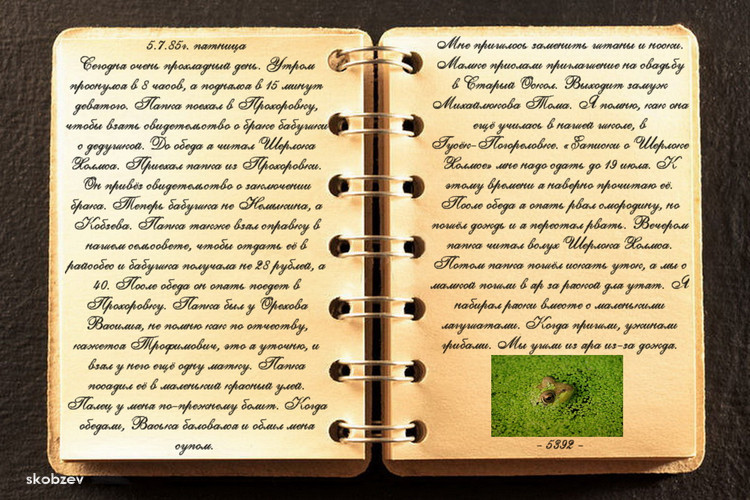 5.7.85г. пятница
Сегодня очень прохладный день. Утром
проснулся в 8 часов, а поднялся в 15 минут
девятого. Папка поехал в Прохоровку,
чтобы взять свидетельство о браке бабушки
с дедушкой. До обеда я читал Шерлока
Холмса. Приехал папка из Прохоровки.
Он привёз свидетельство о заключении
брака. Теперь бабушка не Немыкина, а
Кобзева. Папка также взял справку в
нашем сельсовете, чтобы отдать её в
райсобес и бабушка получала не 28 рублей, а
40. После обеда он опять поедет в
Прохоровку. Папка был у Орехова
Василия, не помню как по отчеству,
кажется Трофимович, это я уточню, и
взял у него ещё одну матку. Папка
посадил её в маленький красный улей.
Палец у меня по-прежнему болит. Когда
обедали, Васька баловался и облил меня
супом.
Мне пришлось заменить штаны и носки.
Мамке прислали приглашение на свадьбу
в Старый Оскол. Выходит замуж
Михайлюкова Тома. Я помню, как она
ещё училась в нашей школе, в
Гусёк-Погореловке. «Записки о Шерлоке
Холмсе» мне надо сдать до 19 июля. К
этому времени я наверно прочитаю её.
После обеда я опять рвал смородину, но
пошёл дождь и я перестал рвать. Вечером
папка читал вслух Шерлока Холмса.
Потом папка пошёл искать уток, а мы с
мамкой пошли в яр за ряской для утят. Я
набирал ряски вместе с маленькими
лягушатами. Когда пришли, ужинали
грибами. Мы ушли из яра из-за дождя.
- 5392 -
skobzev